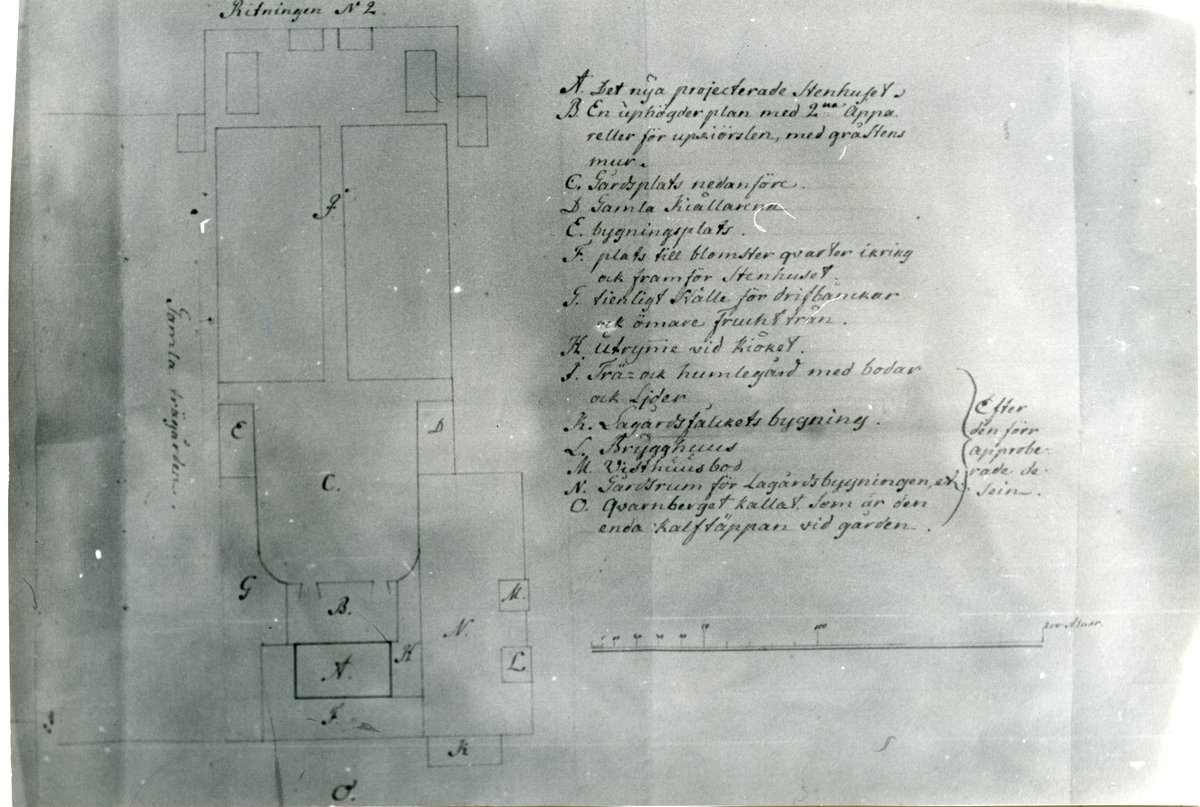 Ritningen N 2
A. Det nÿa projecterade Stenhuset.
B. En uphögder plan med 2ne Appa-
reller för upkiörslen, med gråstens
mur.
C. Gårdsplats nedanföre.
D. Gamla Kiällarena
E. bygningsplats.
F. plats till blomster qvarter ikring
ock framför Stenhuset.
G. tienligt ställe för drifbänckar
ock ömare frucht trän.
H. Utrÿme vid kiöket.
J. Trä- ock humlegård med bodar
ock Lider
K. Lagårdsfålckets bygning.
L. Brÿgghuus
M. Visthuusbod
N. Gårdsrum för Lagårdsbygningen, etc.
O. Qvarnberget kallat, som är den
enda kalftäppan vid gården.
Efter
den förr
approbe-
rade de-
sein.
200 Alnar.
50
100
Gamla trägården.
J
E
D
C.
G
B.
M.
N.
H
L
A.
F
K
O.